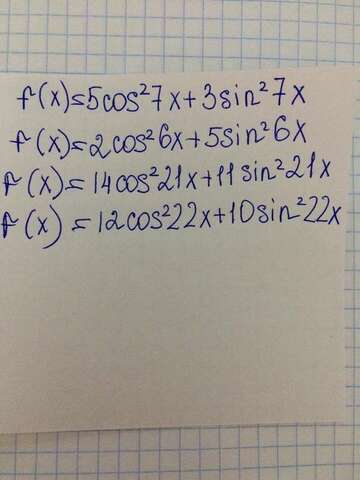 f(x)=5cos²7x+3sin²7x
f(x)=2cos²6x+5sin²6x
f(x)=14cos²21x+11sin²21x
f(x)=12cos²22x+10sin²22x